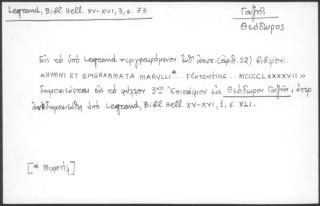 Legrand, Βibl. Hell. XV-XVI, 3, σ. 73
Γαζῆς
Θεόδωρος
Εἰς τὸ ὑπὸ Legrand περιγραφόμενον ἐνθ' (ἀριθ. 52) βιβλίον:
«HYMNI ET EPIGRAMMATA MARULLI* Florentiae... MCCCCLXXXXVII»
δημοσιεύεται εἰς τὸ φύλλον 3 Ἐπιτάφιον εἰς Θεόδωρον Γαζῆν, ὅπερ
ἀνεδημοσιεύθη ὑπὸ Legrand, Bibl. Hell. XV-XVI, 1, σ. XLI.
[* Μιχαήλ]